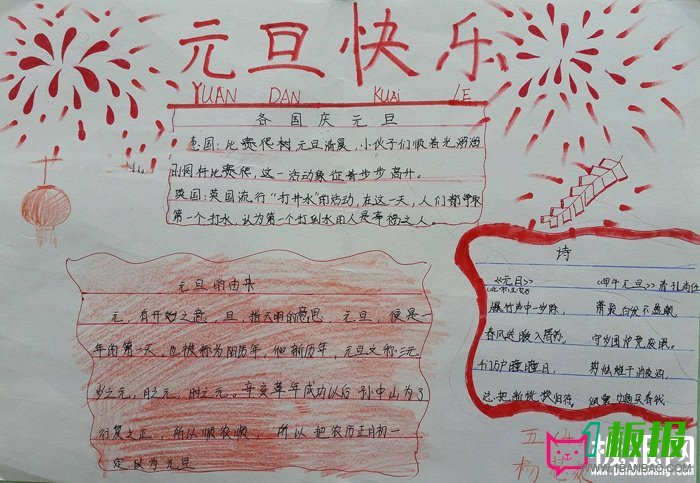 元旦快乐
YUAN DAN KUAI LE
各国庆元旦
德国:比赛爬树元旦清晨,小伙子们顺着光溜溜
的树杆比赛爬,这一活动象征着步步高升。
英国:英国流行“打井水”的活动,在这一天,人们都争取
第一个打水,认为第一个打到水的人是幸福之人。
元旦的由来
元,有开始之意,旦,指天明的意思,元旦,便是一
年的第一天,也被称为阳历年,
岁之元,月之元,时之元。辛亥革年成功以后孙中山为了
行夏之正,所以顺农顺,所以把农历正月初一
定以为元旦
诗
《元日》
爆竹声中一岁除,
春风送暖入屠苏,
千门万户曈曈日,
总把新桃换旧符。
《甲午元旦》
萧疏白发不盈颠,
守岁围炉竟废眠。
五
杨
板报网
WWW.1BANBAO.COM